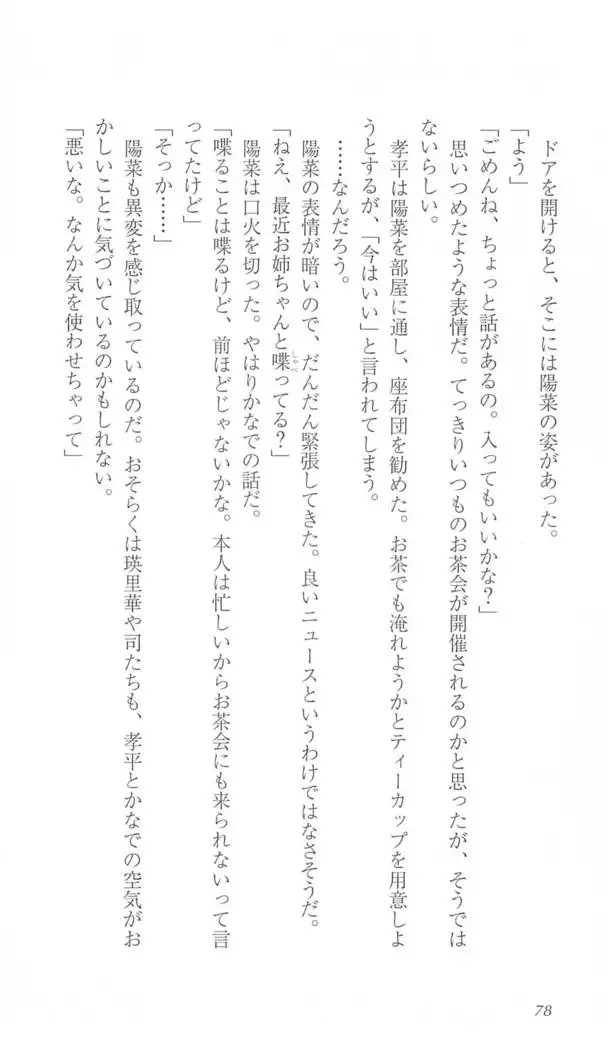 ドアを開けると、そこには陽菜の姿があった。
「よう」
「ごめんね、ちょっと話があるの。入ってもいいかな？」
思いつめたような表情だ。てっきりいつものお茶会が開催されるのかと思ったが、そうでは
ないらしい。
孝平は陽菜を部屋に通し、座布団を勧めた。お茶でも淹れようかとティーカップを用意しよ
うとするが、「今はいい」と言われてしまう。
……なんだろう。
陽菜の表情が暗いので、だんだん緊張してきた。良いニュースというわけではなさそうだ。
「ねえ、最近お姉ちゃんと喋ってる？」
しゃべ
陽菜は口火を切った。やはりかなでの話だ。
「喋ることは喋るけど、前ほどじゃないかな。本人は忙しいからお茶会にも来られないって言
ってたけど」
「そっか……」
陽菜も異変を感じ取っているのだ。おそらくは瑛里華や司たちも、孝平とかなでの空気がお
かしいことに気づいているのかもしれない。
「悪いな。なんか気を使わせちゃって」
78